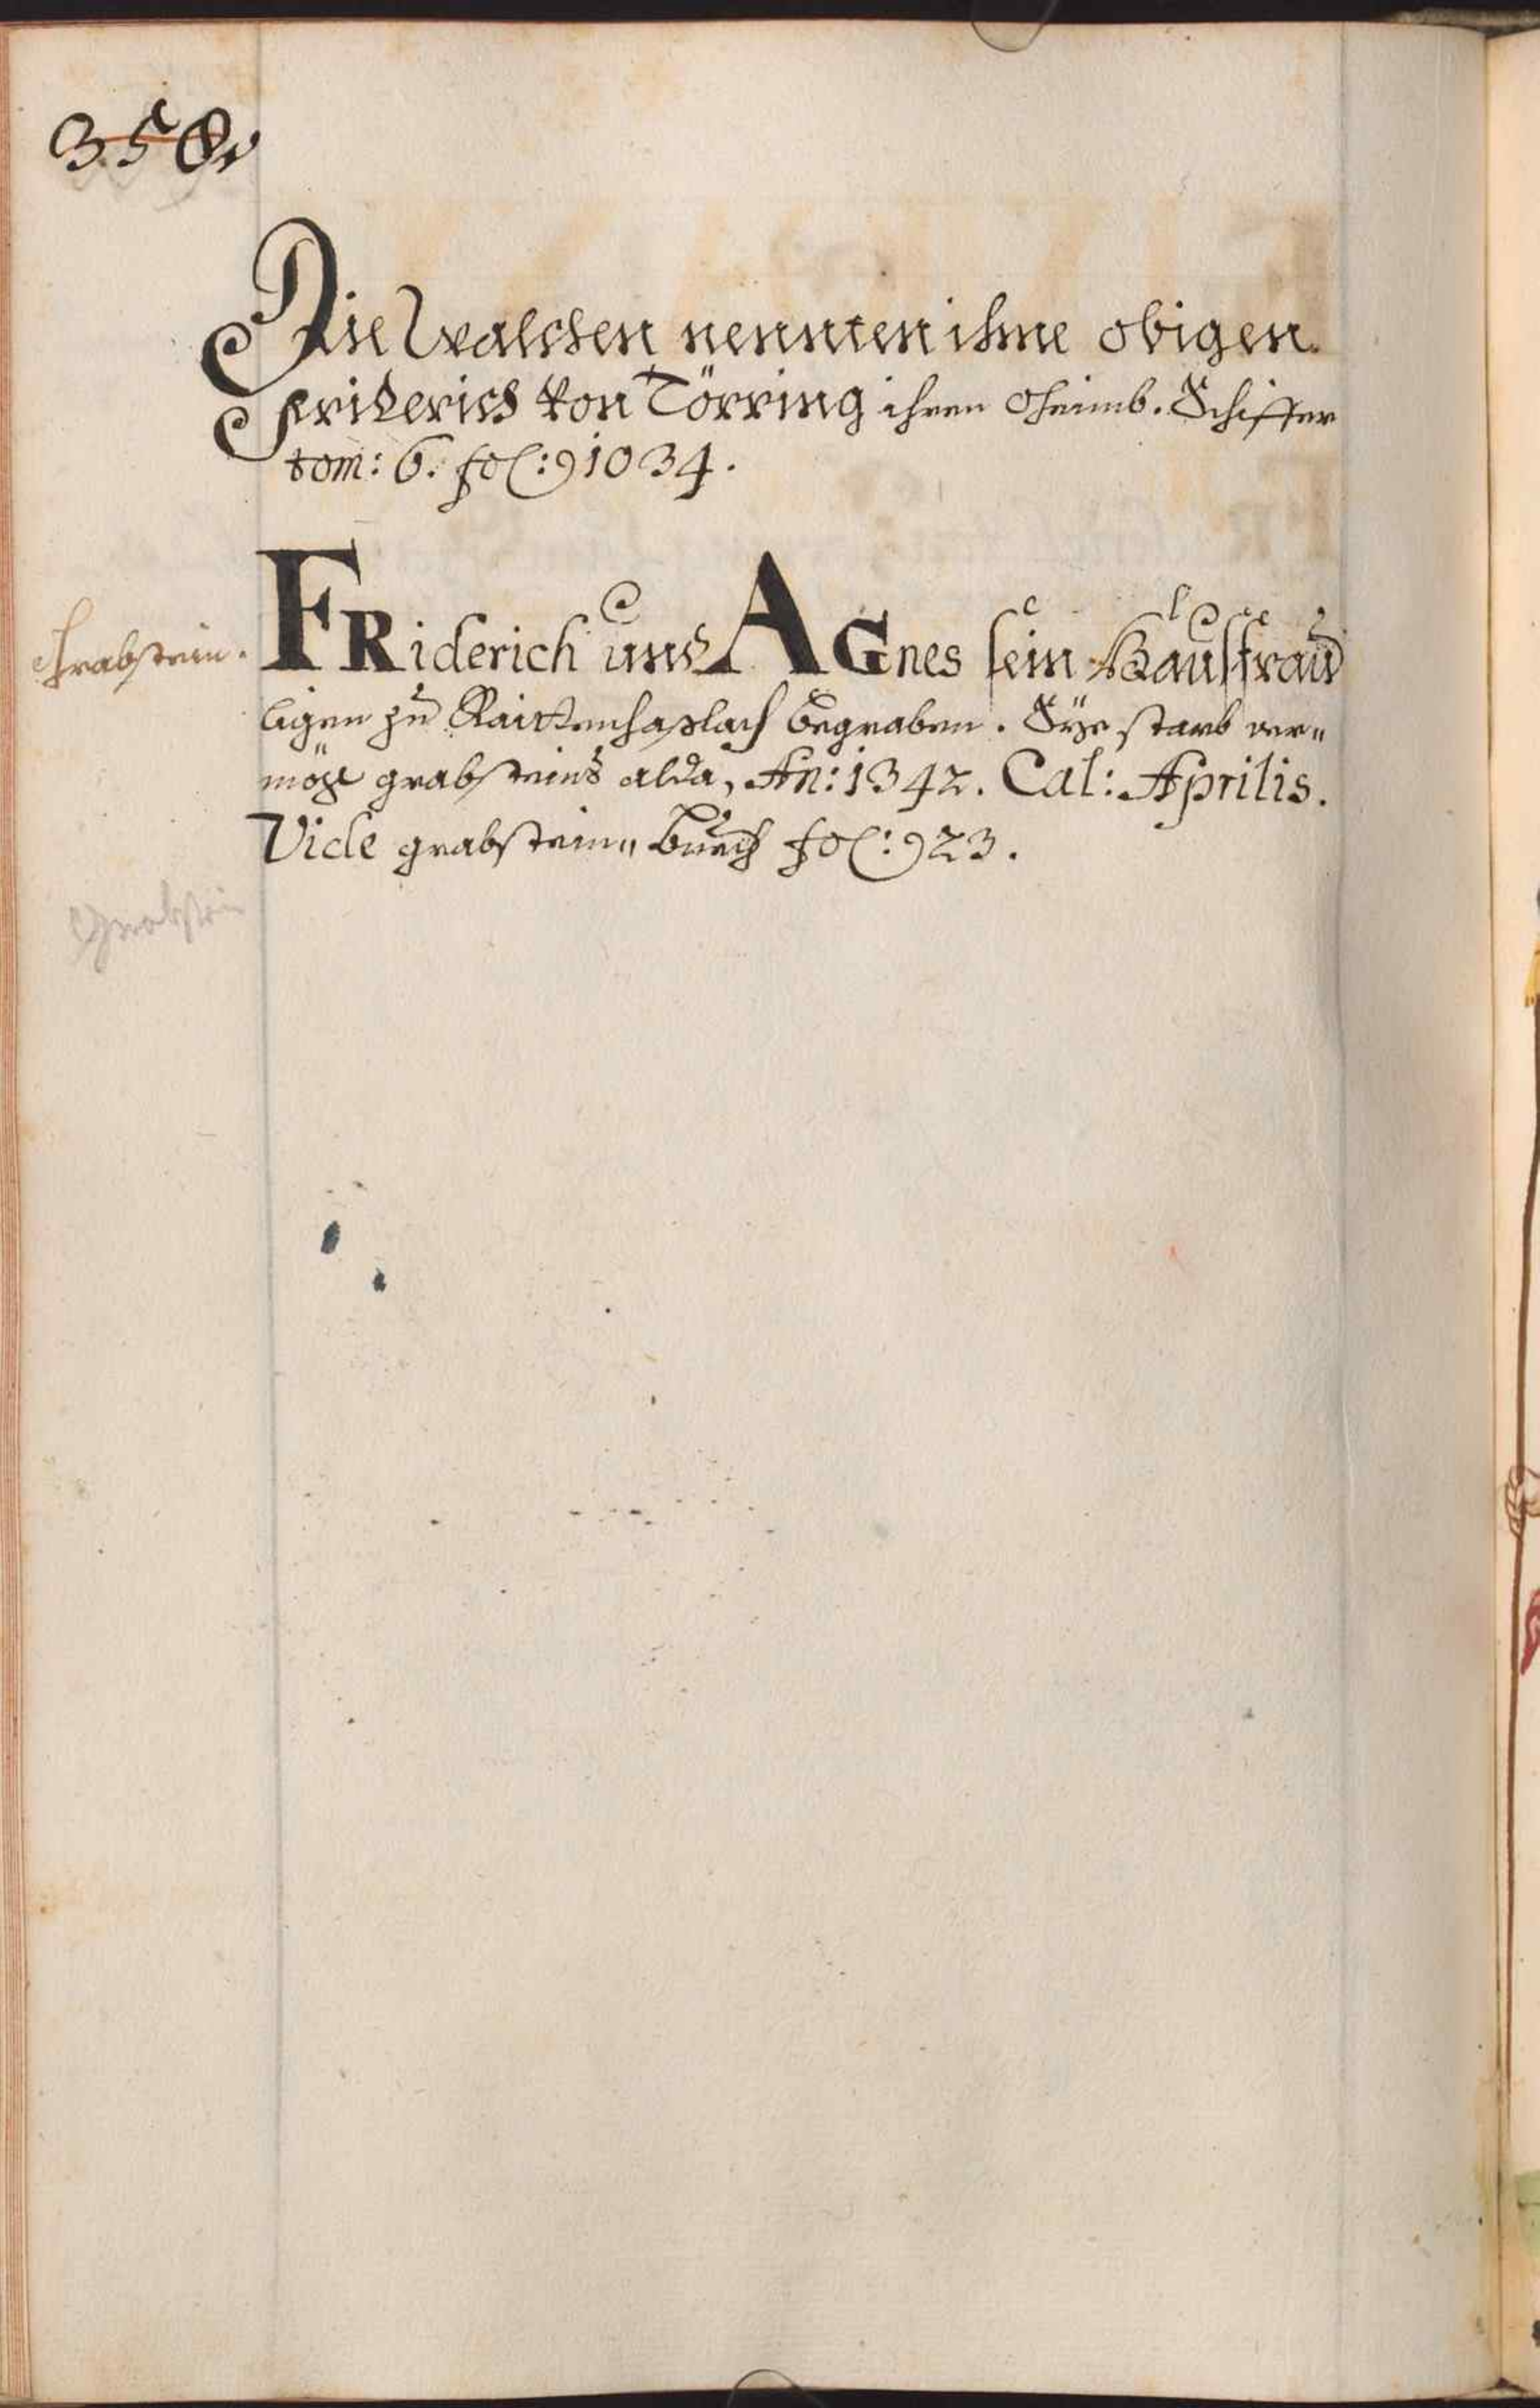 358.
Die Walchen nennten ihne obigen
Friderich von Törring ihren Oheimb. Schiffer
tom: 6. fol: 1034.
Grabstein.
FRiderich und AGnes sein Hausfrau
ligen zu Raittenhaslach begraben. Sÿe starb ver„
mög grabsteins alda, An: 1342. Cal: Aprilis.
Vide grabstein„buech fol: 23.
Grabstein